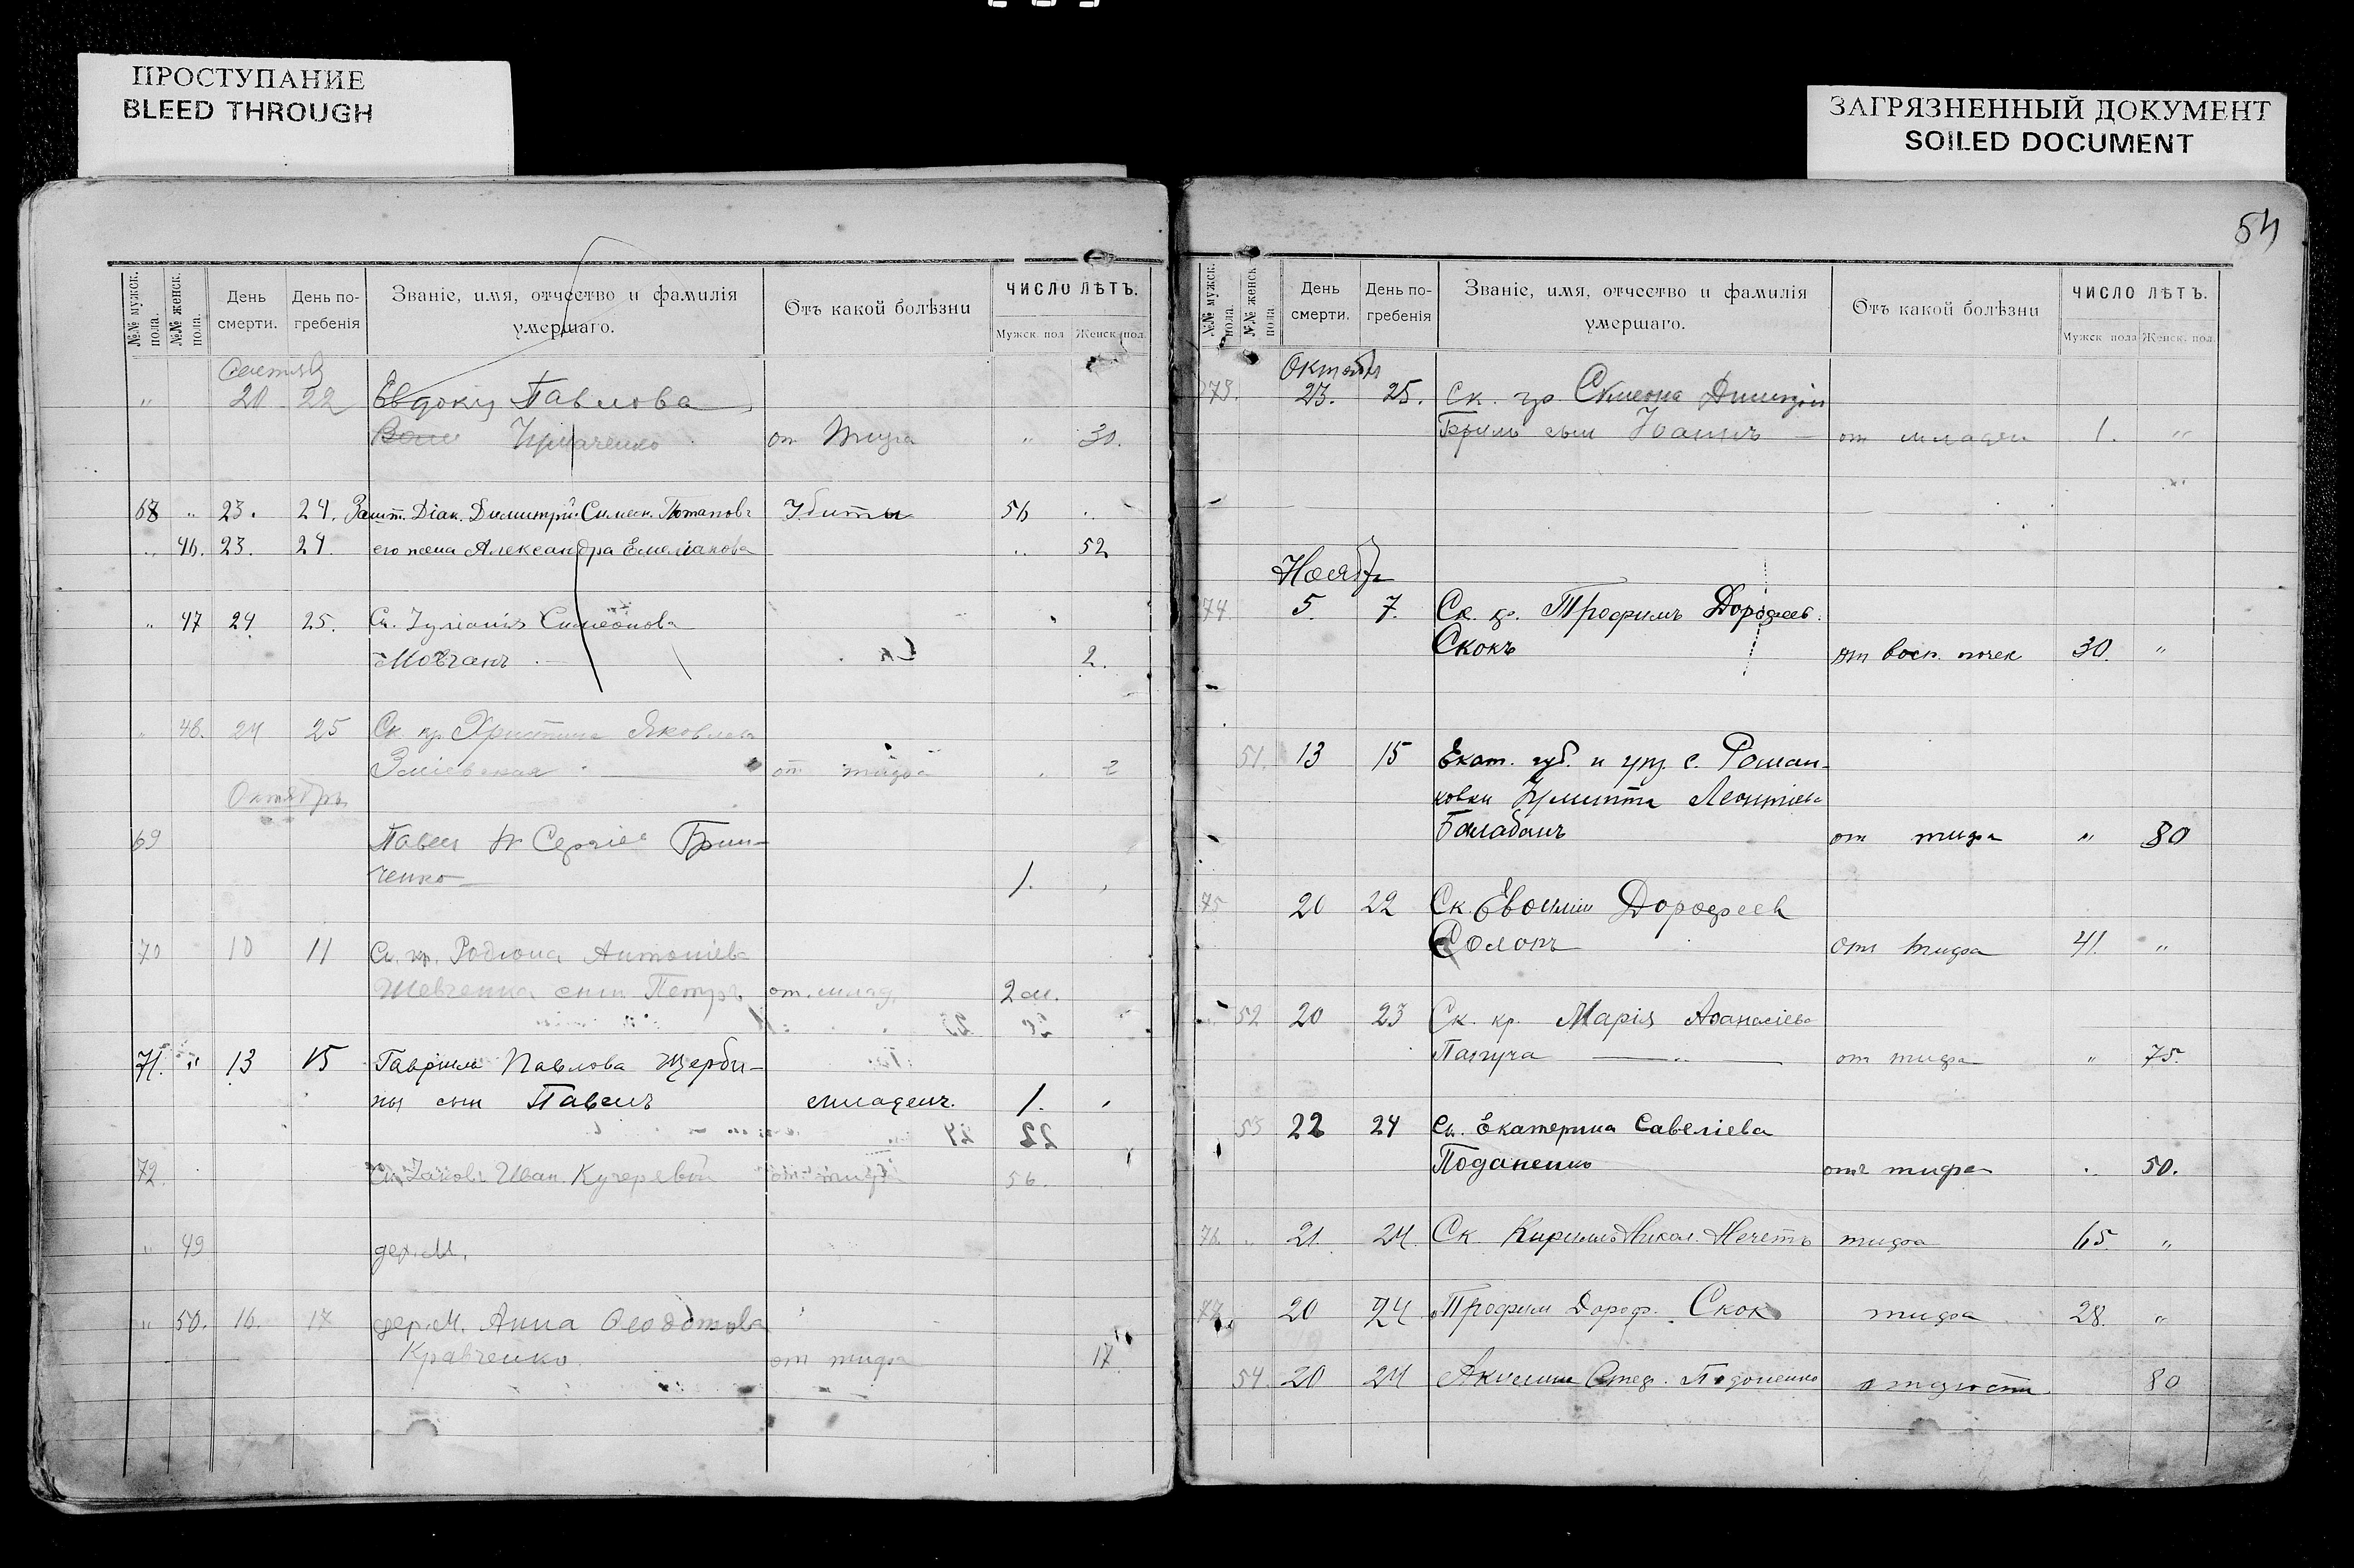 ПРОСТУПАНИЕ
BLEED THROUGH
ЗАГРЯЗНЕННЫЙ ДОКУМЕНТ
SOILED DOCUMENT
№№ мужск. пола.
№№ женск. пола.
День смерти.
День погребенія
Званіе, имя, отчество и фамилія умершаго.
Отъ какой болѣзни
ЧИСЛО ЛѢТЪ.
Мужск. пол
Женск. пол.
20 22 Павлова
30.
68 " 23. 24. Діак. Димитрій Симеон. Потаповъ Убиты 56
" 46. 23. 24. его жена Александра Емеліанова " 52
" 47 24 25. Ск. Іуліанія Симеонова
Мовчанъ 2.
" 48. 24 25 Ск. кр. Христина Яковлева
Зміевская от тифа 2
Октябрь
69 Павел Сергіев Грин-
ченко 1.
70 10 11 Ск. кр. Родіона Антоніева
Шевченка сын Петръ от млад. 2 м.
71. " 13 15 Гавриила Павлова Щерби-
ны сын Павелъ младенч. 1.
72. Ск. Іаковъ Иван. Кучерявый от тифа 56.
" 49 дер. М.
" 50. 16. 17 дер. М. Анна Феодотова
Кравченко от тифа 17
54
№№ мужск. пола.
№№ женск. пола
День смерти.
День погребенія
Званіе, имя, отчество и фамилія умершаго.
Отъ какой болѣзни
ЧИСЛО ЛѢТЪ.
Мужск. пола
Женск. пол.
Октябрь
73. 23. 25. Ск. гр. Симеона
сын Іоаннъ от младен 1. "
Ноябрь
74. 5. 7. Ск. гр. Трофимъ Дорофеев.
Скокъ от восп. почек 30. "
51. 13 15 Екат. губ. и уез. с. Роман-
ковки Леонтіева
Балабанъ от тифа " 80
75 20 22 Ск. Дорофеев
Солопъ отъ тифа 41. "
52 20 23 Ск. кр. Марія Афанасіева
от тифа " 75.
53 22 24 Ск. Екатерина Савеліева
Поданенко отъ тифа 50.
76. " 21. 24. Ск. Кириллъ Никол. Нечетъ тифа 65. "
77. 20 24 Трофим Дороф. Скок тифа 28. "
54. 20 24 80